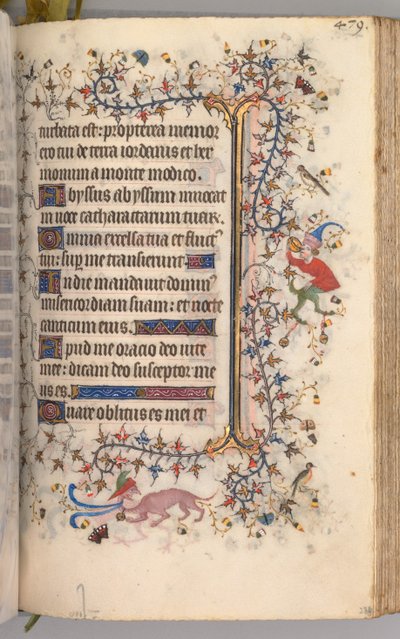 479.
turbata est: propterea memor
ero tui de terra iordanis et her
monium a monte modico.
Abyssus abyssum invocat
in voce catharactarum tuarum.
Omnia excelsa tua et fluct
tui: super me transierunt.
In die mandavit dominus
misericordiam suam: et nocte
canticum eius.
Apud me oracio deo vite
mee: dicam deo susceptor me
us es.
Quare oblitus es mei et